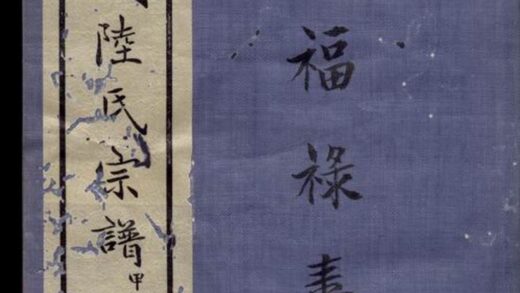 陸氏宗譜甲
福祿